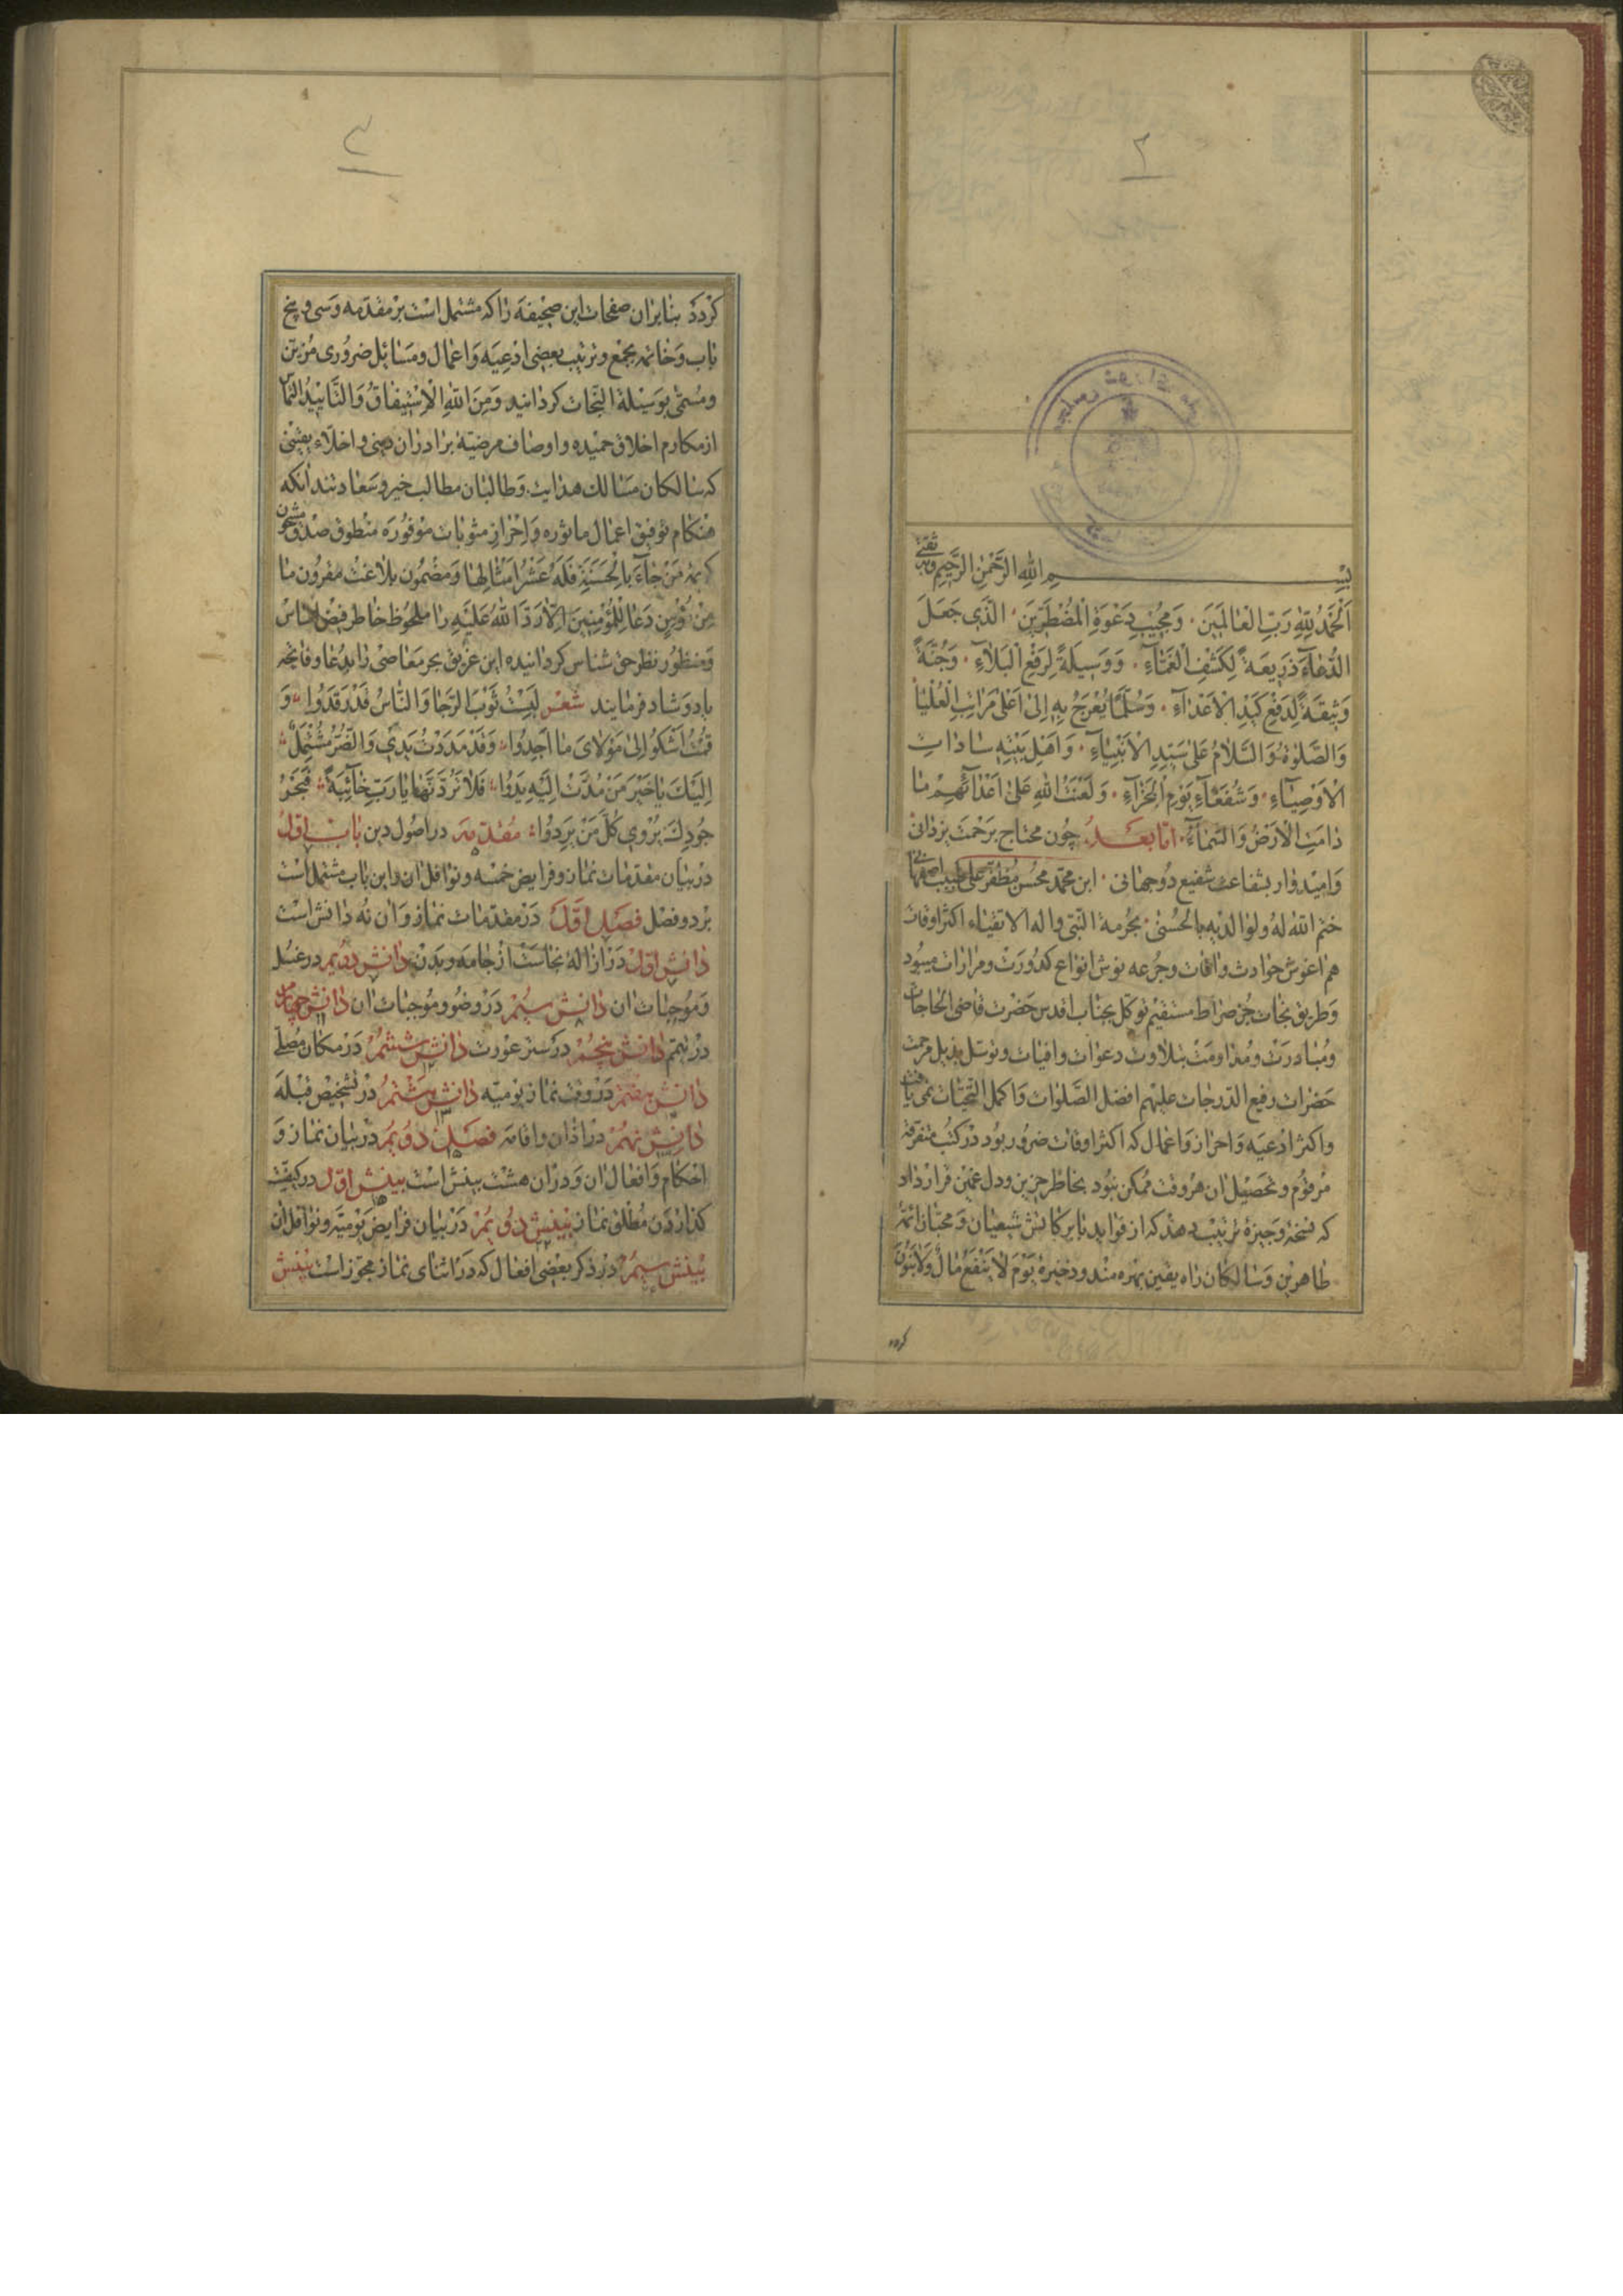 ۲
بِسْمِ اللهِ الرَّحْمٰنِ الرَّحِيمِ وبه ثقتی
اَلْحَمْدُ لِلّٰهِ رَبِّ الْعٰالَمِينَ ، وَمُجِيبِ دَعْوَةِ الْمُضْطَرِّينَ ، الَّذِي جَعَلَ
الدُّعٰآءَ ذَرِيعَةً لِكَشْفِ الْغَمّٰآءِ ، وَوَسِيلَةً لِرَفْعِ الْبَلاٰءِ ، وَجُنَّةً
وَثِيقَةً لِدَفْعِ كَيْدِ الْاَعْدٰآءِ ، وَسُلَّمًا يُعْرَجُ بِهِ اِلىٰ اَعْلىٰ مَرٰاتِبِ الْعُلْيٰا
وَالصَّلوٰةُ وَالسَّلاٰمُ عَلىٰ سَيِّدِ الْاَنْبِيٰآءِ ، وَاَهْلِ بَيْتِهِ سٰادٰاتِ
الْاَوْصِيٰآءِ ، وَشُفَعٰآءِ يَوْمِ الْجَزٰآءِ ، وَلَعْنَتُ اللهِ عَلىٰ اَعْدٰآئِهِمْ مٰا
دٰامَتِ الْاَرْضُ وَالسَّمٰآءُ ، امّا بعد چون محتاج برحمت یزدانی
وامیدوار بشفاعت شفیع دوجهانی ، ابن محمد محسن مظفر علی طبیب اصفهانی
ختم الله له ولوالدیه بالحسنی بحرمة النبی واله الاتقیاء اکثر اوقات
هم اغوش حوادث وافات وجرعه نوش انواع کدورت ومرارات میبود
وطریق نجات جز صراط مستقیم توکل بجناب اقدس حضرت قاضی الحاجات
ومبادرت ومداومت بتلاوت دعوات وافیات وتوسل بذیل مرحمت
حضرات رفیع الدرجات علیهم افضل الصلوات واکمل التحیات نمی یافت
واکثر ادعیه واحراز واعمال که اکثر اوقات ضرور بود در کتب متفرقه
مرقوم وتحصیل ان هروقت ممکن نبود بخاطر حزین ودل غمین قرار داد
که نسخه وجیزهٔ ترتیب دهد که از فواید نابرکاتش شیعیان ومحبان ائمه
طاهرین وسالکان راه یقین بهره مند وذخیرهٔ يَوْمَ لاٰ يَنْفَعُ مٰالٌ وَلاٰ بَنُونَ
کردد
۳
کردد بنابران صفحات این صحیفه را که مشتمل است بر مقدمه وسی و پنج
باب وخاتمه بجمع وترتیب بعضی ادعیه واعمال ومسائل ضروری مزین
ومسمی بوسیلة النجات کردانید وَمِنَ اللهِ الْاِسْتِيفٰاقُ وَالتَّأْيِيدُ التماس
از مکارم اخلاق حمیده واوصاف مرضیهٔ برادران دینی واخلاء یقینی
که سالکان مسالک هدایت وطالبان مطالب خیر وسعادتند انکه
هنکام توفیق اعمال ماثوره واحراز مثوبات موفوره منطوق صدق مشحون
کریمهٔ مَنْ جٰآءَ بِالْحَسَنَةِ فَلَهُ عَشْرُ اَمْثٰالِهٰا ومضمون بلاغت مقرون مٰا
مِنْ مُؤْمِنٍ دَعٰا لِلْمُؤْمِنِينَ اِلاّٰ رَدَّ اللهُ عَلَيْهِ را ملحوظ خاطر فیض اساس
ومنظور نظر حق شناس کردانیده این غریق بحر معاصی را بدعا وفاتحه
یاد وشاد فرمایند شعر لَبِسْتُ ثَوْبَ الرَّجٰا وَالنّٰاسُ قَدْ رَقَدُوا وَ
قُمْتُ اَشْكُو اِلىٰ مَوْلاٰىَ مٰا اَجِدُوا وَقَدْ مَدَدْتُ يَدِي وَالضُّرُّ مُشْتَمِلٌ
اِلَيْكَ يٰا خَيْرَ مَنْ مُدَّتْ اِلَيْهِ يَدُوا فَلاٰ تَرُدَّنَّهٰا يٰا رَبِّ خٰآئِبَةً فَبَحْرُ
جُودِكَ يُرْوِي كُلَّ مَنْ يَرِدُوا مقدمه در اصول دین باب اول
در بیان مقدمات نماز وفرایض خمسه ونوافل ان واین باب مشتمل است
بر دو فصل فصل اول در مقدمات نماز وان نه دانش است
دانش اول در ازالهٔ نجاست از جامه وبدن دانش دویم در غسل
وموجبات ان دانش سیم در وضو وموجبات ان دانش چهارم
در تیمم دانش پنجم در ستر عورت دانش ششم در مکان مصلی
دانش هفتم در وقت نماز یومیه دانش هشتم در تشخیص قبله
دانش نهم در اذان واقامه فصل دویم در بیان نماز و
احکام وافعال ان ودران هشت بینش است بینش اول در کیفیت
کذاردن مطلق نماز بینش دویم در بیان فرایض یومیه ونوافل ان
بینش سیم در ذکر بعضی افعال که در اثنای نماز مجوز است بینش